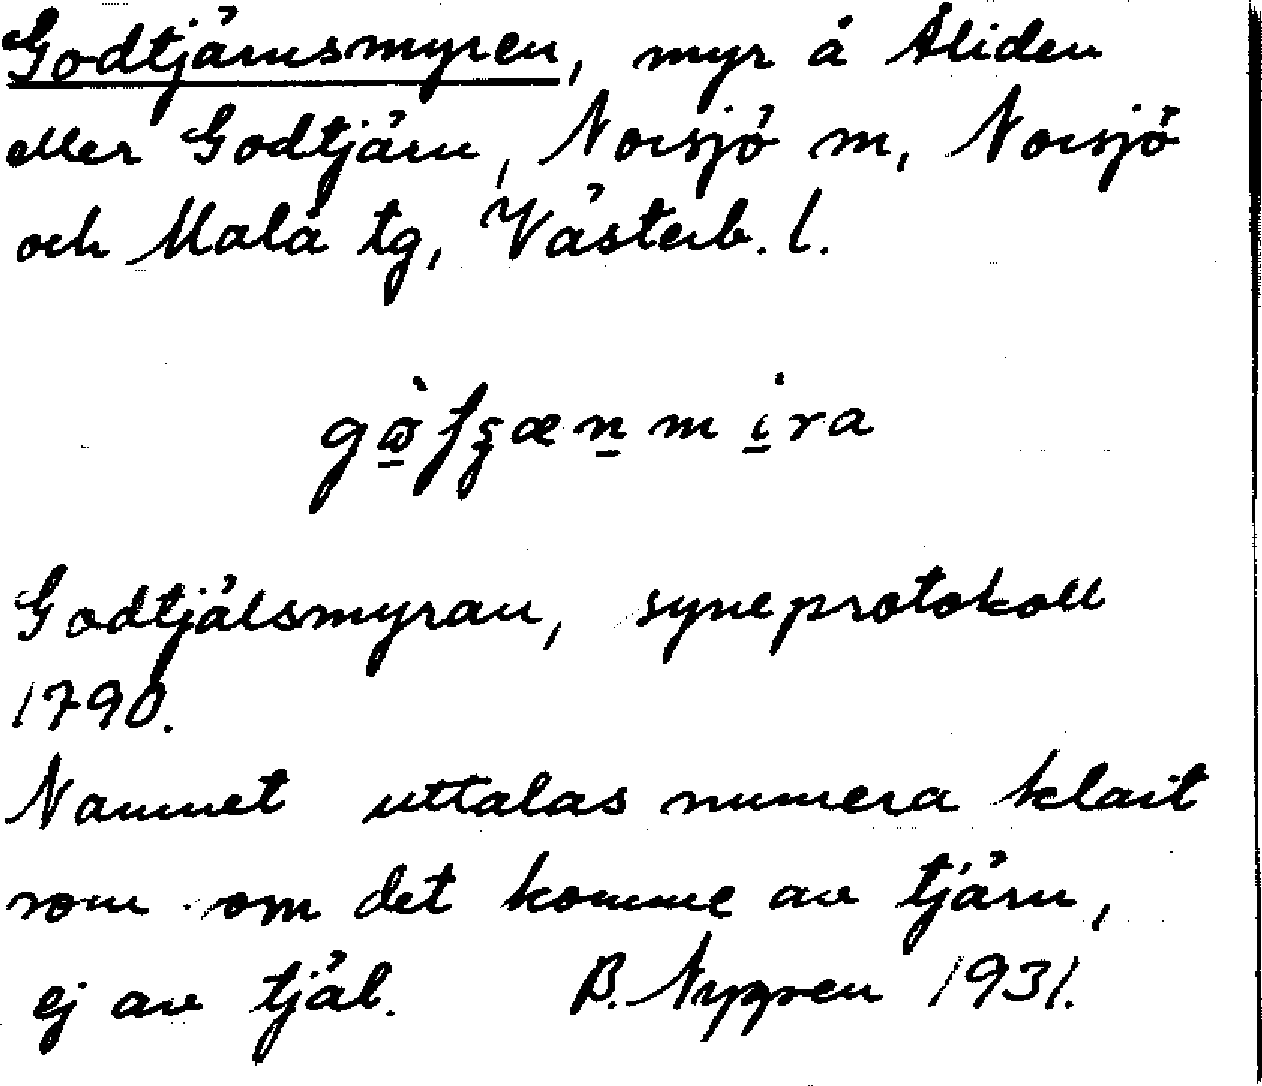 Godtjärnsmyren, myr å Åliden
eller Godtjärn, Norsjö m, Norsjö
och Malå tg, Västerb. l.
Godtjälsmyran, syneprotokoll
1790.
Namnet uttalas numera klart
som om det komme av tjärn,
ej av tjäl. B. Nygren 1931.